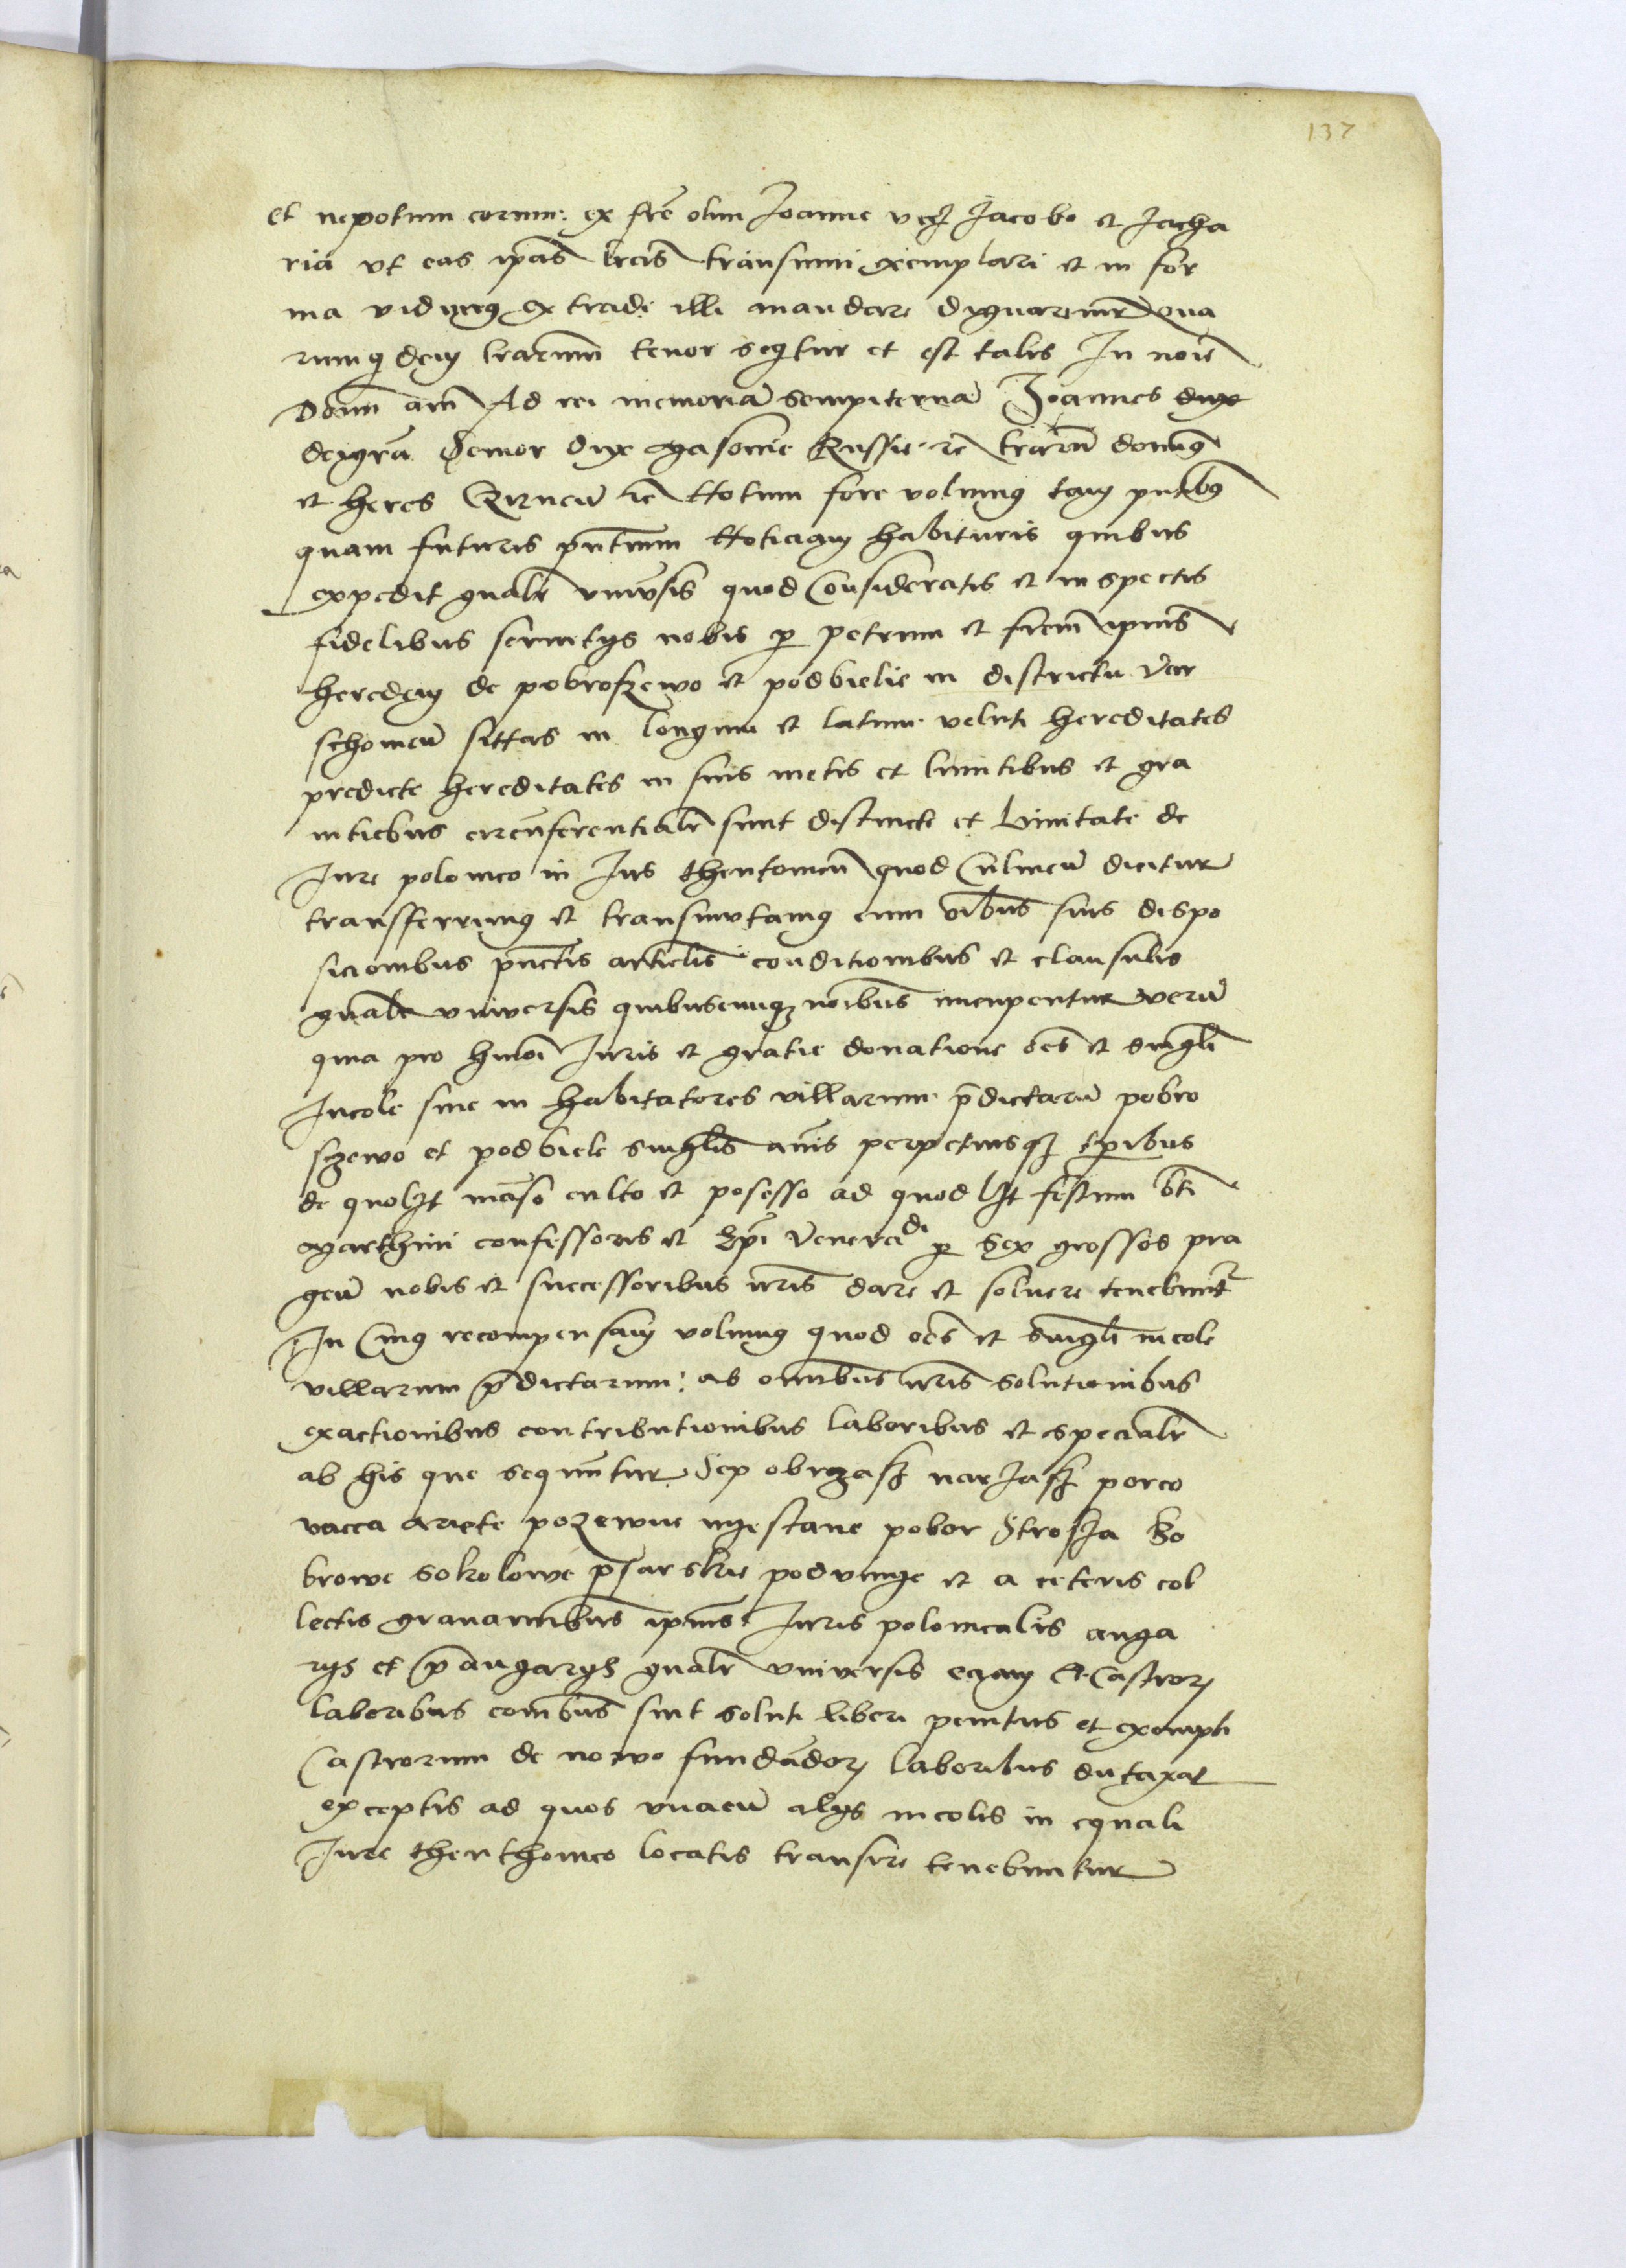 137
et nepotum eorum ex frē olim Joanne vcz Jacobo et Jacha
ria vt eas ip̄as lr̄as transumi exemplari et in for
ma vidimus extradi illi mandare dignaremur qua
rum quidem lr̄arum tenor seqtur et est talis In noīe
Domī am̄ Ad rei memoriā sempiternā Joannes dux
dei grā Senior Dux Masouie Russie rc̄ trarū doming
et heres Cirneū rc̄ Notum fore volumg tam pn̄tibg
quam futuris pn̄tium Noticiam habituris quibus
expedit gn̄alr̄ vniuersis quod Consideratis et inspectis
fidelibus seruitys nobis p Petrum et frem̄ ipius
heredem de pobroszewo et podbielie in districtu Var
schouieū sittas in longum et latum veluti hereditates
predicte hereditates in suis metis et limitibus et gra
nitiebus circūferentialr̄ sunt distincte et limitate de
Jure polonico in Jus theutonicū quod Culmeū dicitur
transferrimg et transmutamg cum oībus suis dispo
sicionibus punctis articlis conditionibus et clausulis
gn̄alr vniversis quibuscumqz noībus nuncupentur verū
quia pro hmōi Juris et gratie donatione oēs et singl̄i
Incole siue inhabitatores villarum p̄dictarū pobro
szewo et podbiele singlis̄ annis perpetuisqz tp̄oribus
de quolzt manso culto et posesso ad quodlzt festum bt̄i
Marthini confessoris et Ep̄i Venerādi p Sex grossos pra
geū nobis et successoribus nr̄is dare et soluere tenebunt
In Cuius recompensam volumg quod oēs et singl̄i incole
villarum p̄dictarum ab omnibus nr̄is solutionibus
exactionibus contributionibus laboribus et specialr̄
ab his que sequuntur Sep obrzasz narzasz porco
vacca ariete pozewne mjestane pobor Stroza bo
browe sokolowe psarskie podvinge et a ceteris col
lectis grauaminibus ipius Juris polonicalis anga
rys et p̄angarys gn̄alr vniversis eciam A Castrorum
laboribus eoībus sint soluti liberi penitus et exempti
Castrorum de nowo fundādorum laboribus dutaxat
exceptis ad quos vnacū alys incolis in equali
Jure theuthonico locatis transire tenebuntur